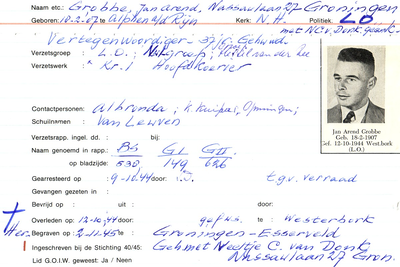 Naam etc.: Grobbe, Jan Arend, Nassaulaan 27 Groningen
Geboren: 18.2.07 te Alphen a/d Rijn Kerk: N.H. Politiek: LO
Vertegenwoordiger - Gehuwd met N.C.v. Donk
Verzetsgroep : L.O.;
Verzetswerk : Kr. / Hoofdkoerier
Contactpersonen: Albronda; K. Kuipal, Opmeingen;
Schuilnamen : van Leuven
Verzetsrapp. ingel. dd. : bij:
Naam genoemd in rapp: BS GI GII
op bladzijde: 538 149 626
Gearresteerd op : 9-10-44 door: t.g.v. verraad
Gevangen gezeten in :
Bevrijd op : uit door:
Overleden op : 12-10-44 door: gefus. te Westerbork
Her Begraven op : 2-11-45 te: Groningen - Esserveld
Ingeschreven bij de Stichting 40/45: Geh. met Neeltje C. van Donk
Lid G.O.I.W. geweest: Ja / Neen Nassaulaan 27 Gron.
Jan Arend Grobbe
Geb. 18-2-1907
Gef. 12-10-1944 West.hoek
(L.O.)